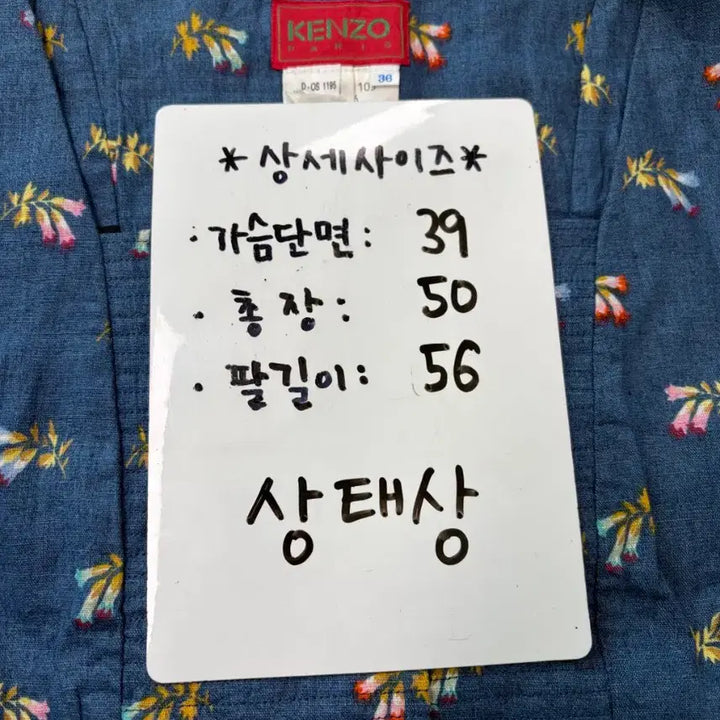 KENZO
PARIS
D-OS 1195
36
*상세사이즈*
·가슴단면: 39
·총장: 50
·팔길이: 56
상태상